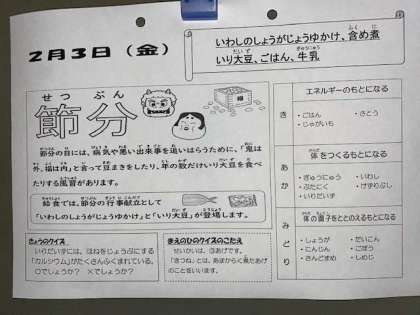 2月3日（金）
いわしのしょうがじょうゆかけ、含め煮
いり大豆、ごはん、牛乳
せつ ぶん
節分
節分の日には、病気や悪い出来事を追いはらうために、「鬼は
外、福は内」と言って豆まきをしたり、年の数だけいり大豆を食べ
たりする風習があります。
給食では、節分の行事献立として
「いわしのしょうがじょうゆかけ」と「いり大豆」が登場します。
きょうのクイズ
いりだいずには、ほねをじょうぶにする
「カルシウム」がたくさんふくまれている。
〇でしょうか？ ×でしょうか？
まえのひのクイズのこたえ
せいかいは、③あげです。
「きつね」とは、あまからく煮たあげ
のことをいいます。
エネルギーのもとになる
き
・ごはん ・さとう
・じゃがいも
体をつくるもとになる
あか
・ぎゅうにゅう ・いわし
・ぶたにく ・けずりぶし
・いりだいず
体の調子をととのえるもとになる
みどり
・しょうが ・だいこん
・にんじん ・ごぼう
・さんどまめ ・しめじ